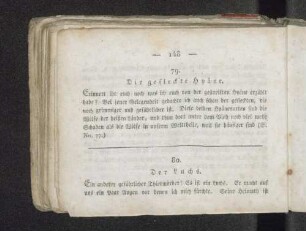 — 148 —
79.
Die gefleckte Hyäne.
Erinnert ihr euch noch was ich euch von der gestreiften Hyäne erzählt
habe? Bei jener Gelegenheit gedachte ich auch schon der gefleckten, die
noch grimmiger und gefährlicher ist. Diese beiden Hyänenarten sind die
Wölfe der heißen Länder, und thun dort unter dem Vieh noch viel mehr
Schaden als die Wölfe in unserm Welttheile, weil sie häufiger sind (S.
Nr.
80.
Der Luchs.
Ein anderer gefährlicher Thiermörder! Es ist ein
auch
uns ein Paar Augen vor denen ich mich fürchte. Seine Heimath ist